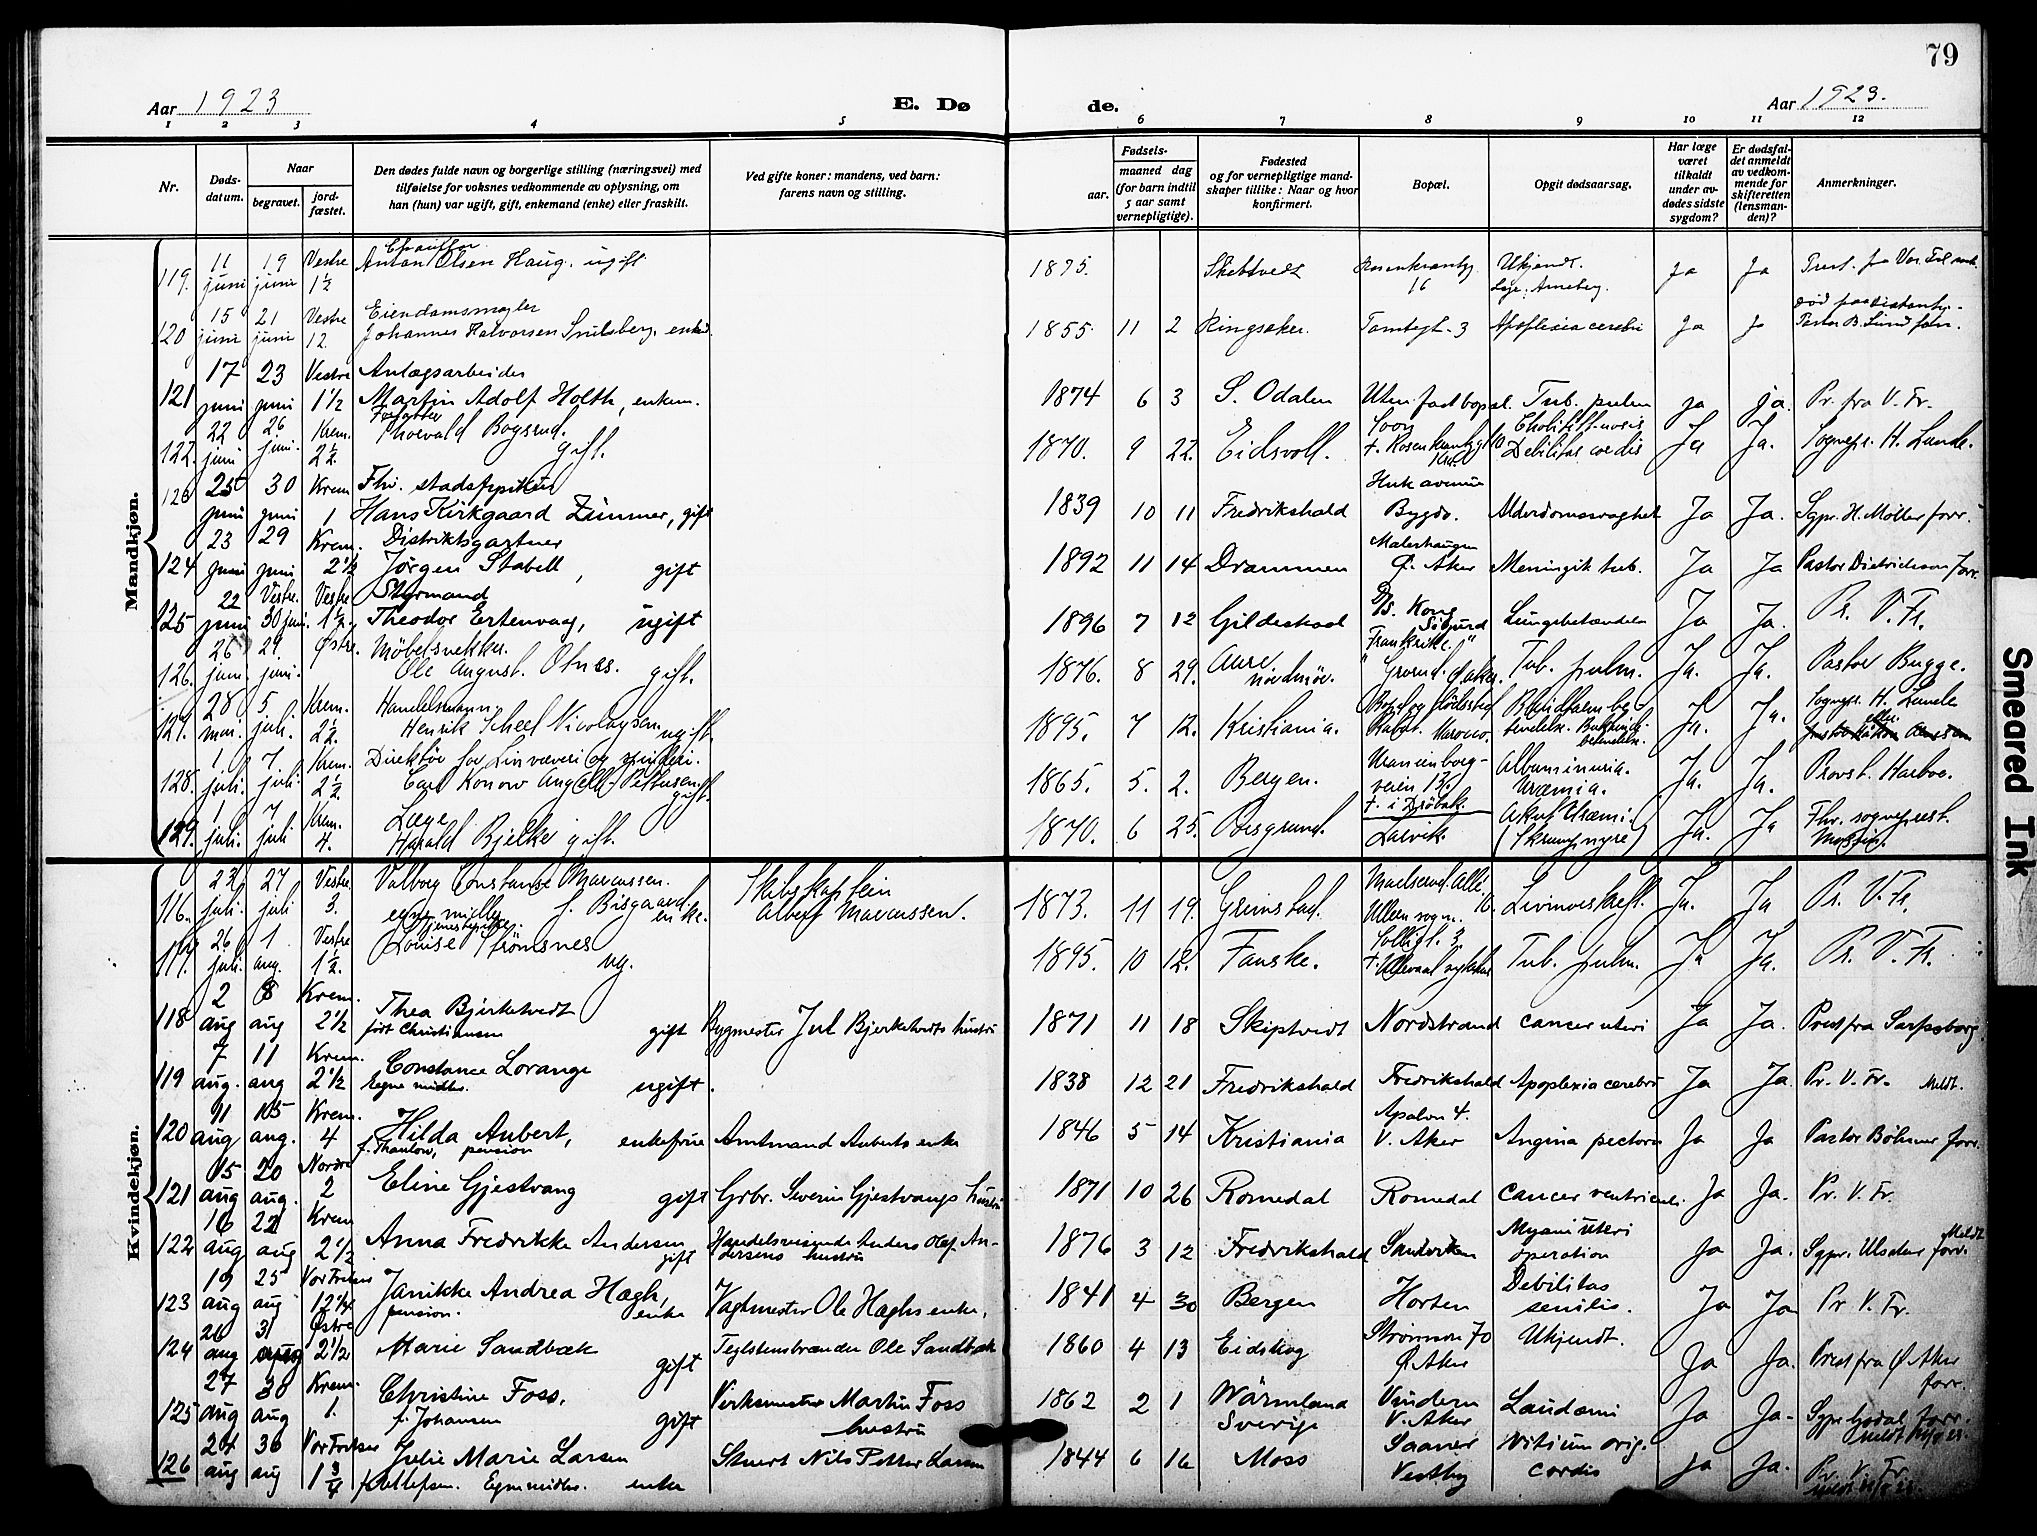 79
Aar 1923
E. Dø
de.
Aar 1923.
1 2 3 4 5 6 7 8 9 10 11 12
Nr.
Døds-
datum.
Naar
begravet.
jord-
fæstet.
Den dødes fulde navn og borgerlige stilling (næringsvei) med
tilføielse for voksnes vedkommende av oplysning, om
han (hun) var ugift, gift, enkemand (enke) eller fraskilt.
Ved gifte koner: mandens, ved barn:
farens navn og stilling.
Fødsels-
aar.
maaned dag
(for barn indtil
5 aar samt
vernepligtige).
Fødested
og for vernepligtige mand-
skaper tillike: Naar og hvor
konfirmert.
Bopæl.
Opgit dødsaarsag.
Har læge
været
tilkaldt
under av-
dødes sidste
sygdom?
Er dødsfal-
det anmeldt
av vedkom-
mende for
skifteretten
(lensman-
den)?
Anmerkninger.
Mandkjøn.
119. 11 juni 19 juni Vestre 1½ Chauffør Anton Olsen Haug, ugift 1875. Rosenkrantzg. 16 Ukjendt. Ja Ja
120 15 juni 21 juni Vestre 12. Eiendomsmægler Johannes Halvorsen 1855. 11 2 Ringsaker. Tomtegt. 3 Apoplexia cerebri Ja Ja
121 17 juni 23 juni Vestre 1½ Anlægsarbeider Martin Adolf Holth, enkem. 1874 6 3 S. Odalen Uten fast bopæl. Tub. pulm Ja ja. Pr. fra V. Fr.
122. 22 juni 26 juni. Krem. 2½. Forfatter Thorvald Bogsrud. gift. 1870. 9 22. Eidsvoll. Debilitas cordis Ja Ja. Sognepr. H. Lunde.
123 25 juni 30 juni Krem 1 Fhv. stadsfysikus Hans Kirkgaard Zimmer, gift 1839 10 11 Fredrikshald Huk avenue Bygdø. Alderdomssvaghet Ja Ja. Sgpr. H. Møller forr.
124 23 juni 29 juni Krem. 2½ Distriktsgartner Jørgen Stabell, gift 1892 11 14 Drammen Malerhaugen Ø. Aker Meningit tub. Ja Ja Pastor Dietrichson forr.
125 22 juni Vestre. 30 juni. Vestre 1½ Styrmand Theodor Ertenvaag, ugift 1896 7 12 Gildeskaal D/S. Kong Sigurd Frankrike. Lungebetændelse Ja Ja. Pr. V. Fr.
126. 26 juni. 29 juni. Østre. Møbelsnekker. Ole August Otnes. gift. 1876. 8 29. Aure nordmøre. Grorud. Ø. Aker. Tub. pulm. Ja. Ja. Pastor Bugge.
127. 28 mai. 5 juli. Krem. 2½. Handelsmann Henrik Scheel Nicolaysen ugift. 1895. 7 12. Kristiania. Rabat. Marocco. Blindtarmbetændelse. Ja. Ja. Sognepr. H. Lunde
128. 1 juli. 7 juli. Krem. 2½. Direktør for Linvæveri og spinderi. Carl Konow Angell Pettersen gift. 1865. 5. 2. Bergen. Uranienborgveien 13. Albuminuria. Uræmia. Ja. Ja. Provst. Harboe.
129. 1 juli. 7 juli Krem. 4. Læge Harald Bjelke gift. 1870. 6 25. Porsgrund. † i Drøbak. Larvik Akut Uræmi. (Skrumpnyre) Ja. Ja Fhv. sogneprest.
Kvindekjøn.
116. 23 juli. 27 juli Vestre. 3. Valborg Constanse Marcussen. egne midler f. Bisgaard. enke. Skibskaptein Albert Marcussen. 1873. 11 19. Grimstad. Ullern sogn. Ja. Ja Pr. V. Fr.
117. 26 juli. 1 aug. Vestre 1½. Tjenestepike. Louise Strømsnes ug. 1895. 10 12. Fauske. Solligt. 3 † Ullevaal sykehus Tub. pulm. Ja Ja. Pr. V. Fr.
118 2 aug 8 aug Krem. 2½ Thea Bjerketvedt født Christiansen gift Bygmester Jul Bjerketvedts hustru 1871 11 18 Skiptvedt Nordstrand cancer uteri Ja Ja. Prest fra Sarpsborg
119 7 aug. 11 aug Krem. 2½ Constance Lorange Egne midler. ugift. 1838 12 21 Fredrikshald Fredrikshald Apoplexia cerebri Ja Ja. Pr. V. Fr. Meldt.
120 11 aug 15 aug. Krem. 4 Hilda Aubert, f. Thaulow, pension enkefrue Amtmand Auberts enke 1846 5 14 Kristiania Apalvn 4. V. Aker Angina pectoris Ja Ja Pastor Böhmer forr.
121 15 aug 20 aug. Nordre 2 Eline Gjestvang gift Grbr. Severin Gjestvangs hustru 1871 10 26 Romedal Romedal cancer ventriculi. Ja Ja. Pr. V. Fr.
122 16 aug 22 aug Krem 2½ Anna Fredrikke Andersen gift Handelsreisende Anders Olaf Andersens hustru 1876 3 12 Fredrikshald Sandviken Myom uteri operation Ja Ja. Sgpr. forr. Meldt
123 19 aug 25 aug Vor Frelsers 12¼ Janikke Andrea Hægh, pension. enke Vagtmester Ole Hæghs enke, 1841 4 30 Bergen Horten Debilitas senilis. Ja Ja Pr V. Fr.
124 26 aug 31 aug Østre 2½ Marie Sandbæk gift Teglstensbrænder Ole Sandbæk 1860 4 13 Eidskog Strømsvn 70 Ø. Aker Ukjendt. Ja Ja. Prest fra Ø Aker forr.
125 27 aug 30 aug Krem. 1. Christine Foss, f. Johansen gift Verksmester Martin Foss hustru 1862 2 1 Wärmland Sverige Vindern V. Aker Ja Ja. forr.
126 24 aug 30 aug Vor Frelser 1¾ Julie Marie Larsen f. Ellefsen. Egne midler. enke Stuert Nils Petter Larsen 1844 6 16 Moss Saaner Vestby Vitium org. cordis Ja Ja. Pr. V. Fr.
Smeared Ink